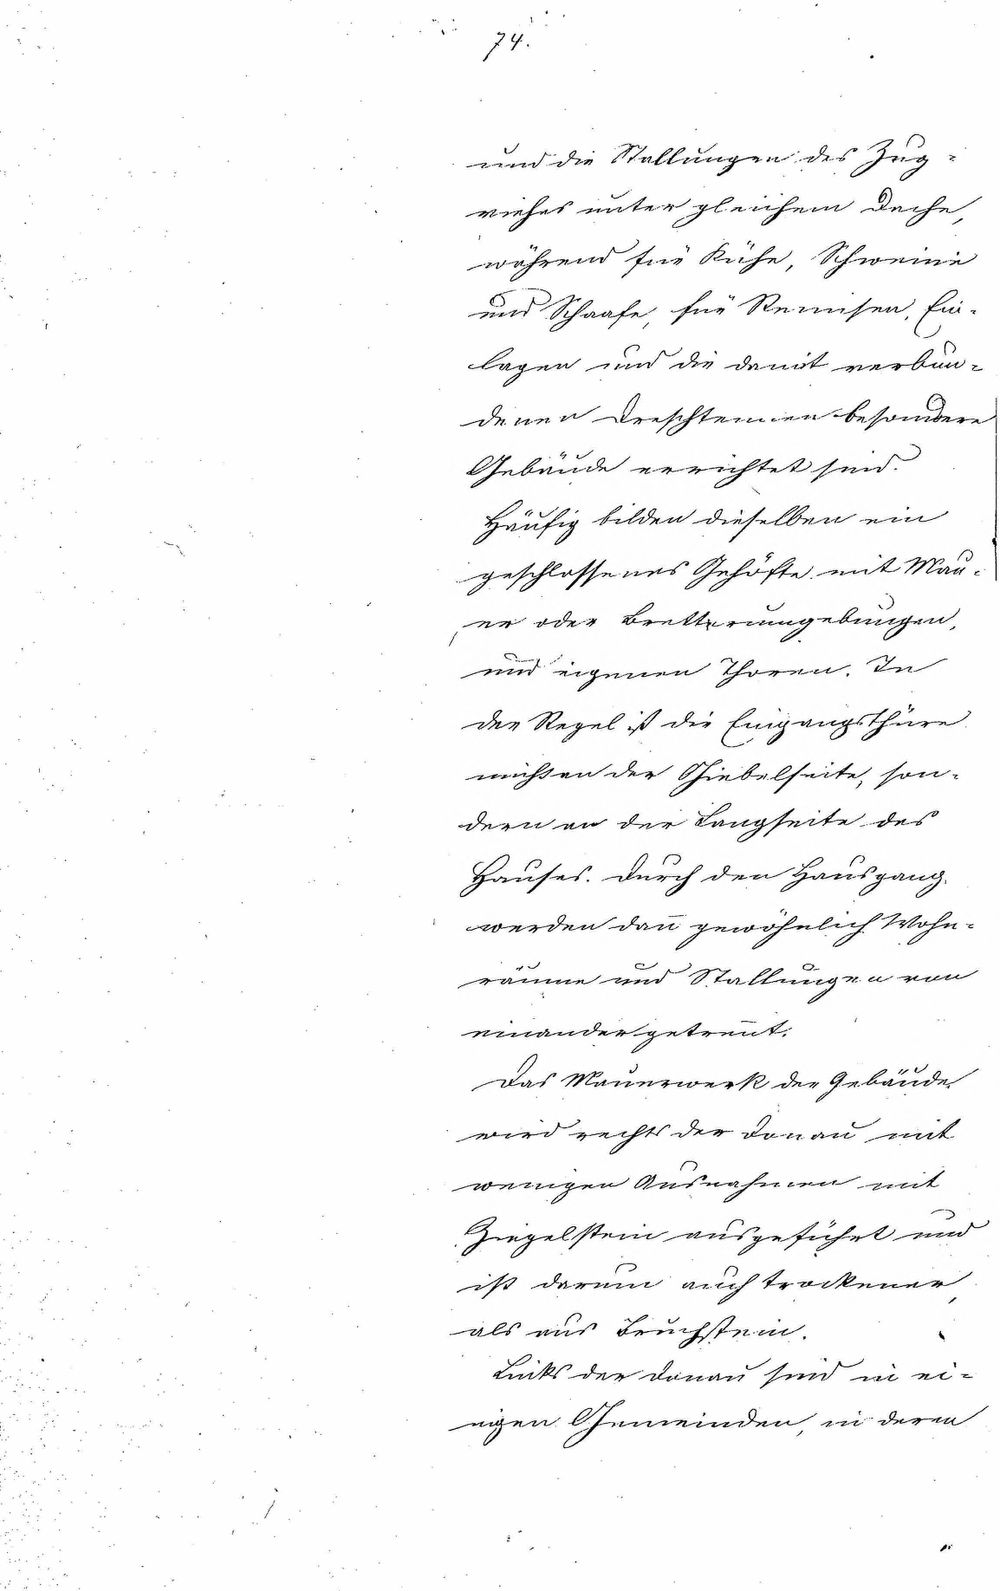 74.
und die Stallungen des Zug-
viehes unter gleichem Dache,
während für Kühe, Schweine
und Schaafe, für Remisen, Ein-
lagen und die damit verbun-
denen Dreschtennen besondere
Gebäude errichtet sind.
Häufig bilden dieselben ein
geschlossenes Gehöfte mit Mau-
er oder Bretterumgebungen,
und eigenen Thoren. In
der Regel ist die Eingangsthüre
nicht an der Giebelseite, son-
dern an der Langseite des
Hauses. Durch den Hausgang
werden dan̅ gewöhnlich Wohn-
räume und Stallungen von
einander getren̅t.
Das Mauerwerk der Gebäude
wird rechts der Donau mit
wenigen Ausnahmen mit
Ziegelstein ausgeführt und
ist darum auch trockener,
als aus Bruchstein.
Links der Donau sind in ei-
nigen Gemeinden, in deren